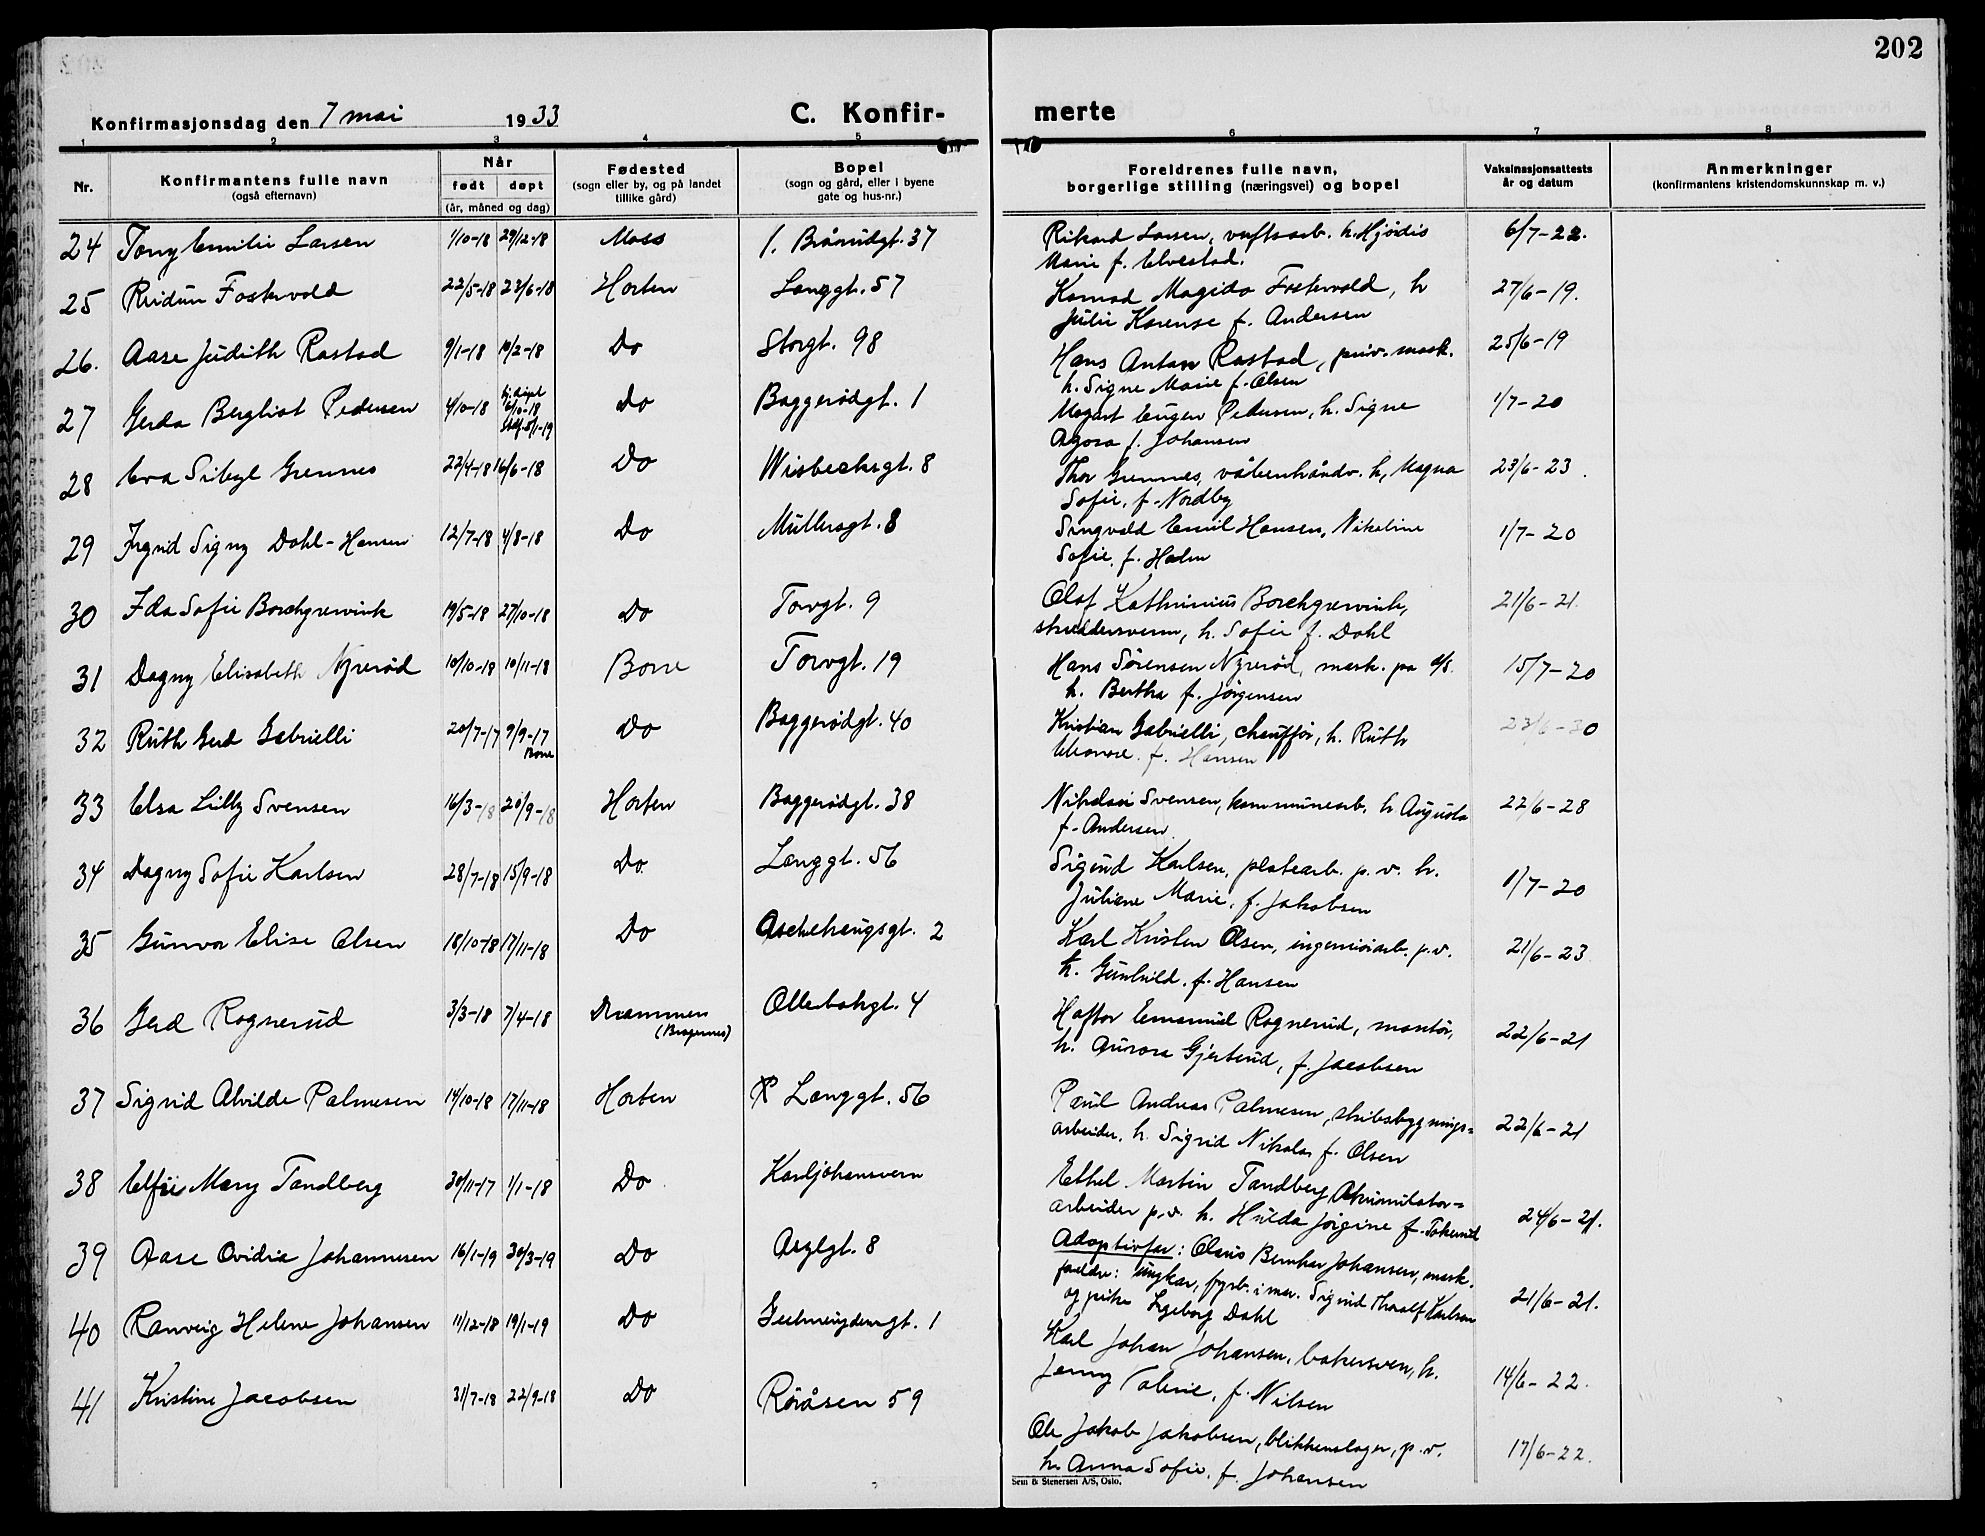 202
Konfirmasjonsdag den 7 mai 1933
C. Konfir- merte
1 2 3 4 5 6 7 8
Nr.
Konfirmantens fulle navn
(også efternavn)
Når
født døpt
(år, måned og dag)
Fødested
(sogn eller by, og på landet
tillike gård)
Bopel
(sogn og gård, eller i byene
gate og hus-nr.)
Foreldrenes fulle navn,
borgerlige stilling (næringsvei) og bopel
Vaksinasjonsattests
år og datum
Anmerkninger
(konfirmantens kristendomskunnskap m. v.)
24 Tony Emilie Larsen 1/10-18 29/12-18 Moss f. Brårudgt. 37 Rikard Larsen, verftsarb. h. Hjördis 6/7-22.
Marie f. Elvestad.
25 Reidun Fostervold 22/5-18 23/6-18 Horten Langgt. 57 Konrad Magido Fostervold, h 27/6-19.
Julie Karense f. Andersen
26. Aase Judith Rastad 9/1-18 10/2-18 Do Storgt. 98 Hans Anton Rastad, priv. mask. 25/6-19
h. Signe Marie f. Olsen
27 Gerda Bergliot Pedersen 4/10-18 hj.døpt 6/10-18 Stadf. 5/1-19 Do Baggerödgt. 1 Mozart Eugen Pedersen, h. Signe 1/7-20
Agora f. Johansen
28 Eva Sibyl Grennes 22/4-18 16/6-18 Do Wisbecksgt. 8 Thor Grennes, våbenhåndv. h, Magna 23/6-23.
Sofie, f. Nordby
29 Ingrid Signy Dahl-Hansen 12/7-18 4/8-18 Do Müllersgt. 8 Singvald Emil Hansen, Nikoline 1/7-20
Sofie, f. Holm
30 Ida Sofie Borchgrevink 19/5-18 27/10-18 Do Torvgt. 9 Olaf Kathinius Borchgrevink, 21/6-21.
skreddersvenn, h. Sofie f. Dahl
31 Dagny Elisabeth Nyrerød 10/10-18 10/11-18 Borre Torvgt. 19 Hans Sörensen Nyrerød, mask. pa d/s. 15/7-20
h. Bertha f. Jørgensen
32 Ruth Gerd Gabrielli 20/7-17 9/9-17 Borre Do Baggerödgt. 40 Kristian Gabrielli, chauffør, h. Ruth 23/6-30
Eleonore. f. Hansen
33 Elsa Lilly Svensen 16/3-18 20/9-18 Horten Baggerödgt. 38 Nikolai Svensen, kommunearb. h Augusta 22/6-28
f. Andersen
34 Dagny Sofie Karlsen 28/7-18 15/9-18 Do. Langgt. 56 Sigurd Karlsen, platearb. p. v. h. 1/7-20
Juliane Marie, f. Jakobsen
35 Gunvor Elise Olsen 18/10-18 17/11-18 Do Aschehaugsgt. 2 Karl Kristen Olsen, ingeniörarb. p.v. 21/6-23
h. Gunhild. f. Hansen
36 Gerd Rognerud 3/3-18 7/4-18 Drammen (Bragernes) Ollebakgt. 4 Haftor Emanuel Rognerud, montör, 22/6-21
h. Aurora Gjertrud, f. Jacobsen
37 Sigrid Alvilde Palmesen 14/10-18 17/11-18 Horten Langgt. 56 Paul Andreas Palmesen, skibsbygnings= 22/6-21
arbeider, h. Sigrid Nikola f. Olsen
38 Elfie Mary Tandberg 30/11-17 1/1-18 Do Karljohansvern Ethel Martin Tandberg Akumulator= 24/6-21.
arbeider p.v. h. Hulda Jørgine f. Tokerud
39 Aase Ovidia Johannesen 16/1-19 30/3-19 Do Asylgt. 8 Adoptivfar: Olaus Bernhar Johansen, mask. 21/6-21.
foreldre: ungkar, fyrb. i mar. Sigurd Thoralf Karlsen
og pike Ingeborg Dahl
40 Ranveig Helene Johansen 11/12-18 19/1-19 Do Geelmeydengt. 1 Karl Johan Johansen, bakersven, h. 14/6-22.
Jenny Valerie, f. Nilsen
41 Kristine Jacobsen 31/7-18 22/9-18 Do Röråsen 59 Ole Jakob Jakobsen, blikkenslager, p. v. 17/6-22.
h Anna Sofie, f. Johansen
Sem & Stenersen A/S, Oslo.